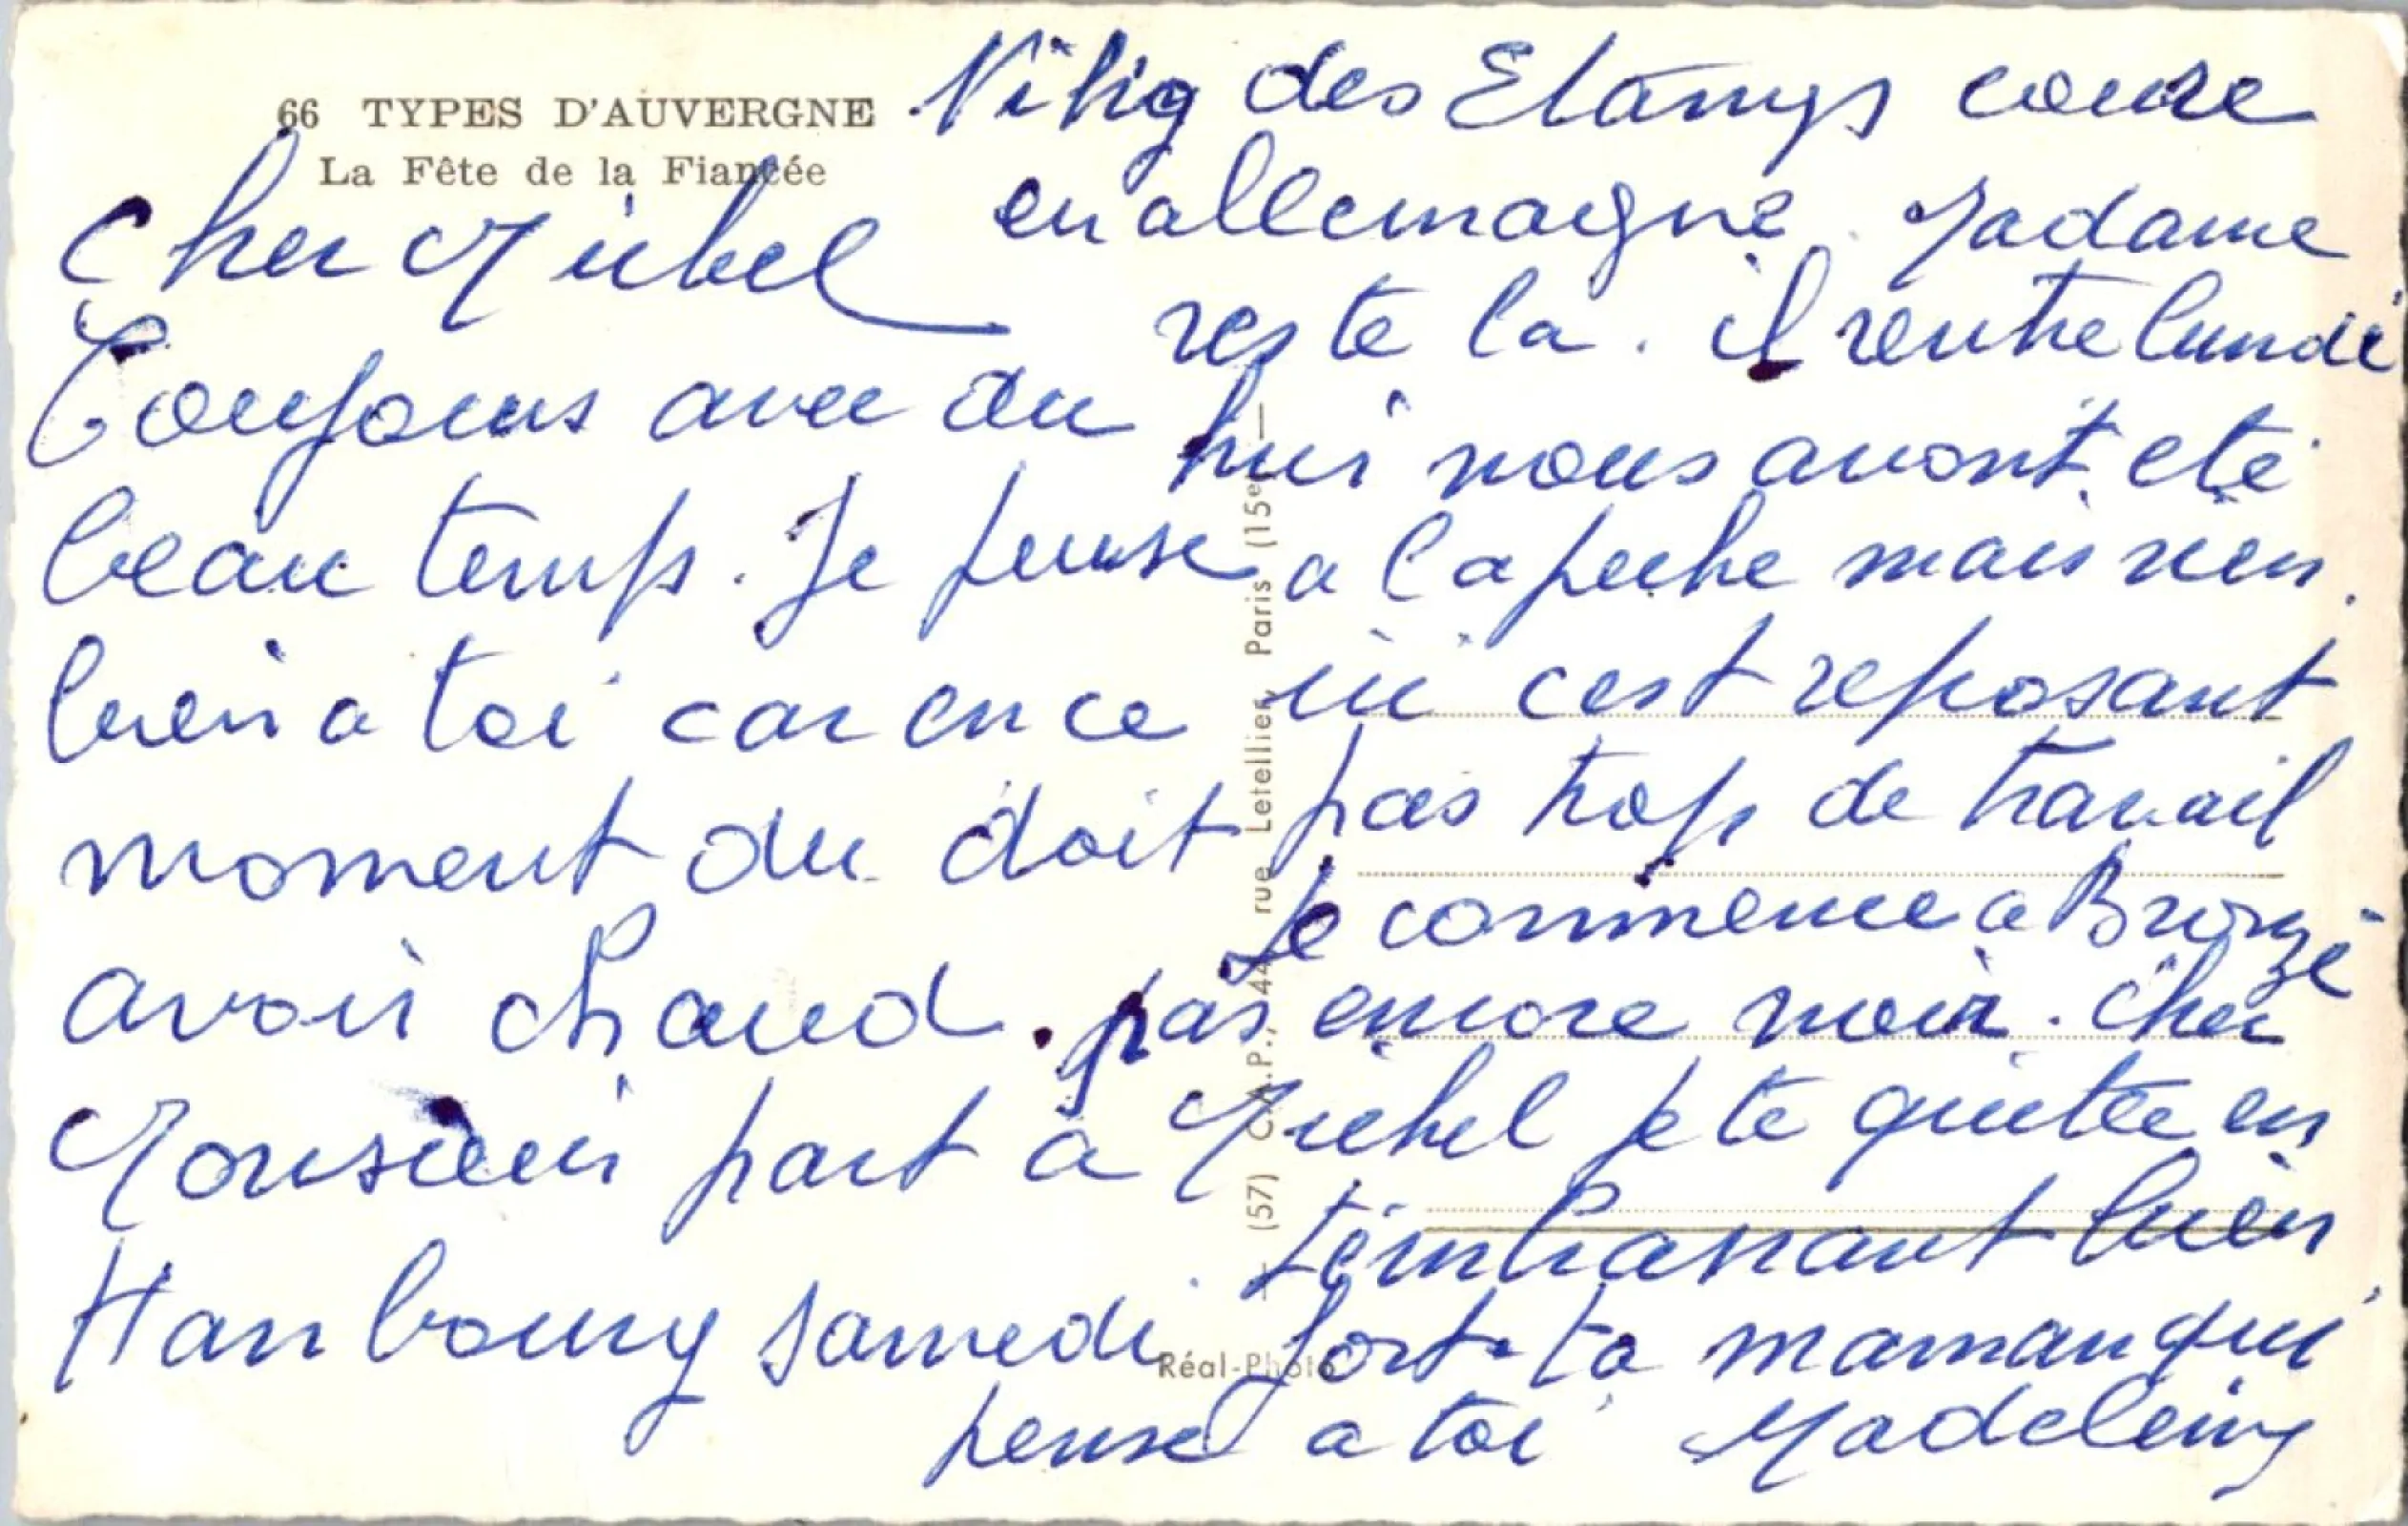 66 TYPES D'AUVERGNE
La Fête de la Fiancée
Cher Michel
Toujours avec du
beau temps. Je pense
bien a toi car en ce
moment du doit
avoir chaud.
Monsieur part à
Hanbourg samedi
des Etangs coure
en allemagne. Madame
reste la. il rentre lundi
hui nous avont eté
a la peche mais rien.
ici cest reposant
pas trop de travail
Je commence a Bronzé
pas encore noir. cher
Michel je te quitte en
t'embrassant bien
fort. ta maman qui
pense a toi Madeleine
— (57) C.A.P., 44, rue Letellier, Paris (15e) —
Réal-Photo